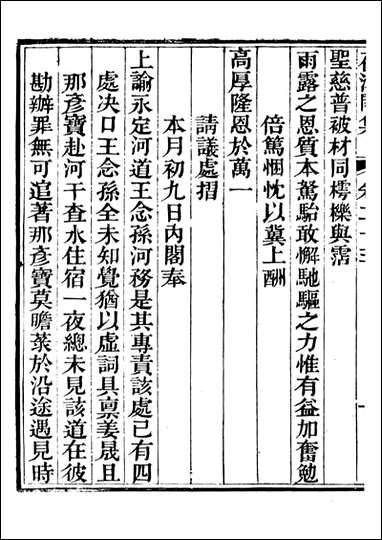 聖慈普被材同樗櫟與霑
雨露之恩質本駑駘敢懈馳驅之力惟有益加奮勉
倍篤悃忱以冀上酬
高厚隆恩於萬一
請議處摺
本月初九日內閣奉
上諭永定河道王念孫河務是其專責該處已有四
處決口王念孫全未知覺猶以虛詞具稟姜晟且
那彥寶赴河干查水住宿一夜總未見該道在彼
勘辦罪無可逭著那彥寶莫瞻菉於沿途遇見時